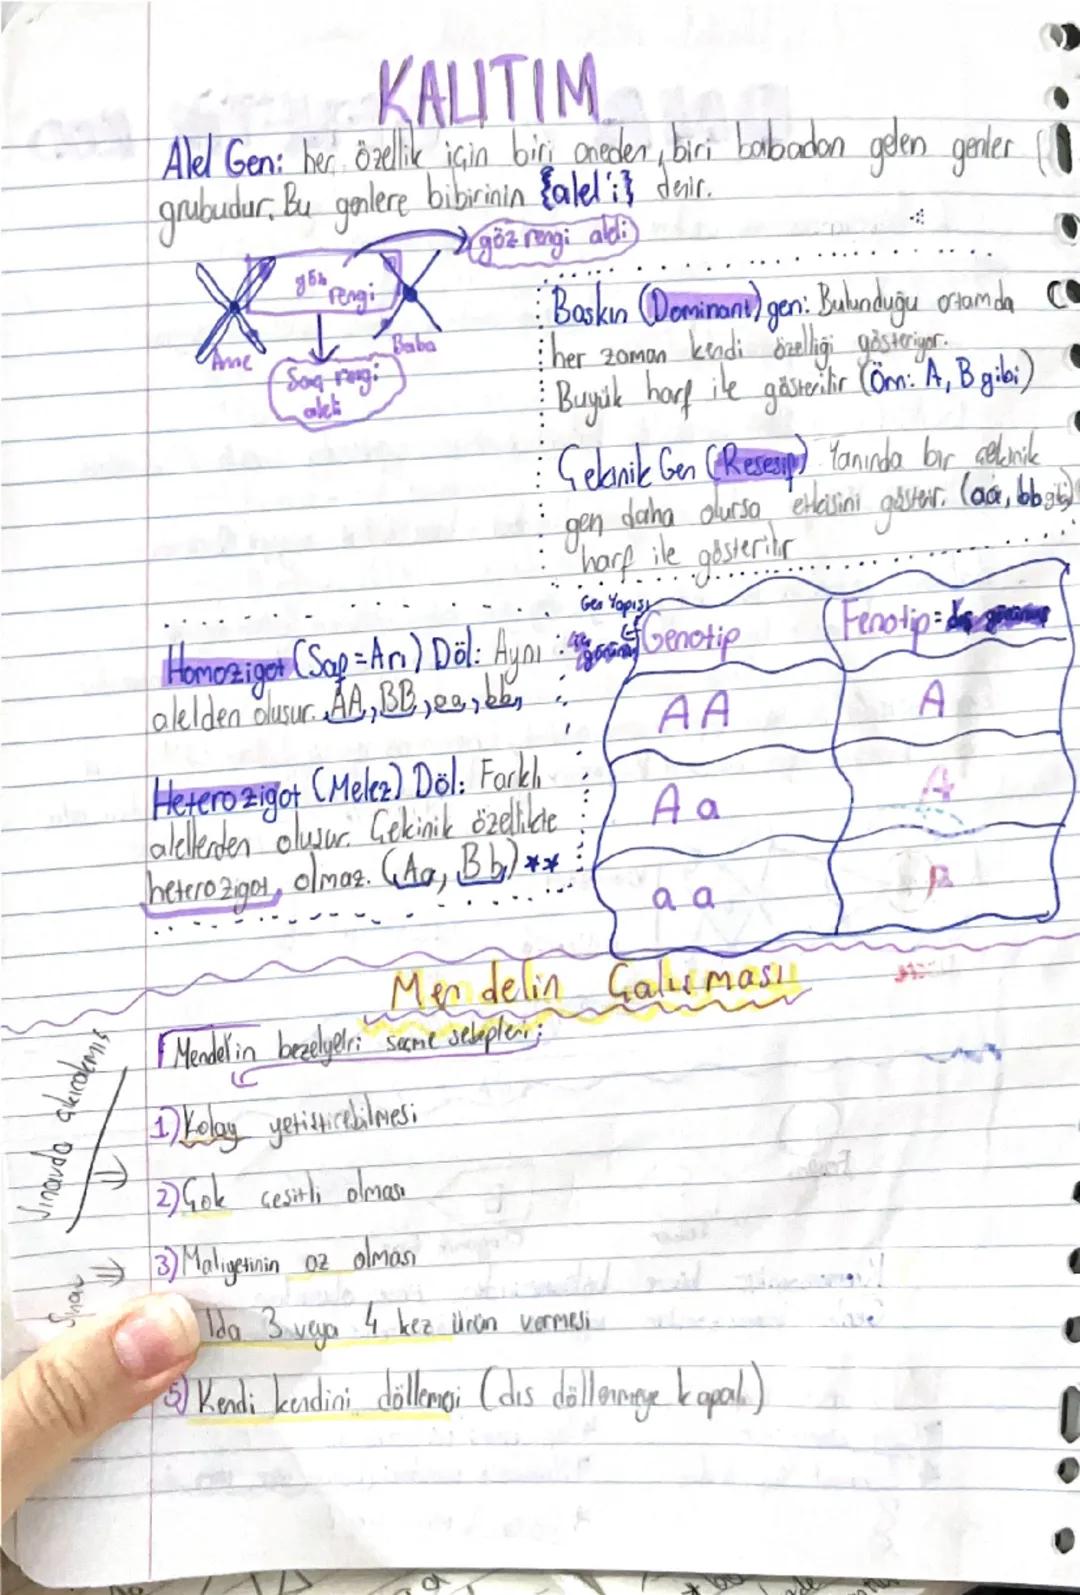 KALITIM
Alel Gen: her özellik için biri aneden, biri babadan gelen genler
grubudur. Bu genlere bibirinin {alel'i} denir.
göz rengi aleli
göz
rengi
Anne
Baba
Saç rengi
aleli
Baskın (Dominant) gen: Bulunduğu ortamda
her zaman kendi özelliği gösteriyor.
Buyük harf ile gösterilir (Örn: A, B gibi)
Çekinik Gen (Resesip) Yanında bir çekinik
gen daha olursa etkisini gösterir. (aa, bb gibi)
harf ile gösterilir
Homozigot (Saf=Arı) Döl: Aynı
alelden oluşur. AA, BB, aa, bb,
Heterozigot (Melez) Döl: Farklı
alellerden oluşur. Çekinik özellikte
heterozigot olmaz. (Aa, Bb) **
Gen Yapısı
Genotip
Fenotip= dış görünüş
AA
A
Aa
A
aa
Mendelin Çalışması
Mendel'in bezelyelri seçme sebepleri:
Sınavda çıkıcakmış
1) Kolay yetişticebilmesi
2) Çok çeşitli olması
Sınav
3) Maliyetinin az olması
lda 3 veya 4 kez ürün vermesi
5) Kendi kendini döllemesi (dış döllenmeye kapalı)